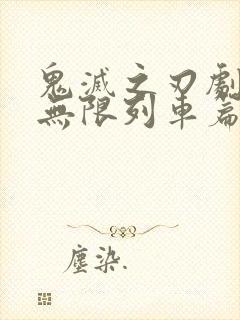 鬼滅之刃劇
無限列車篇
塵染.